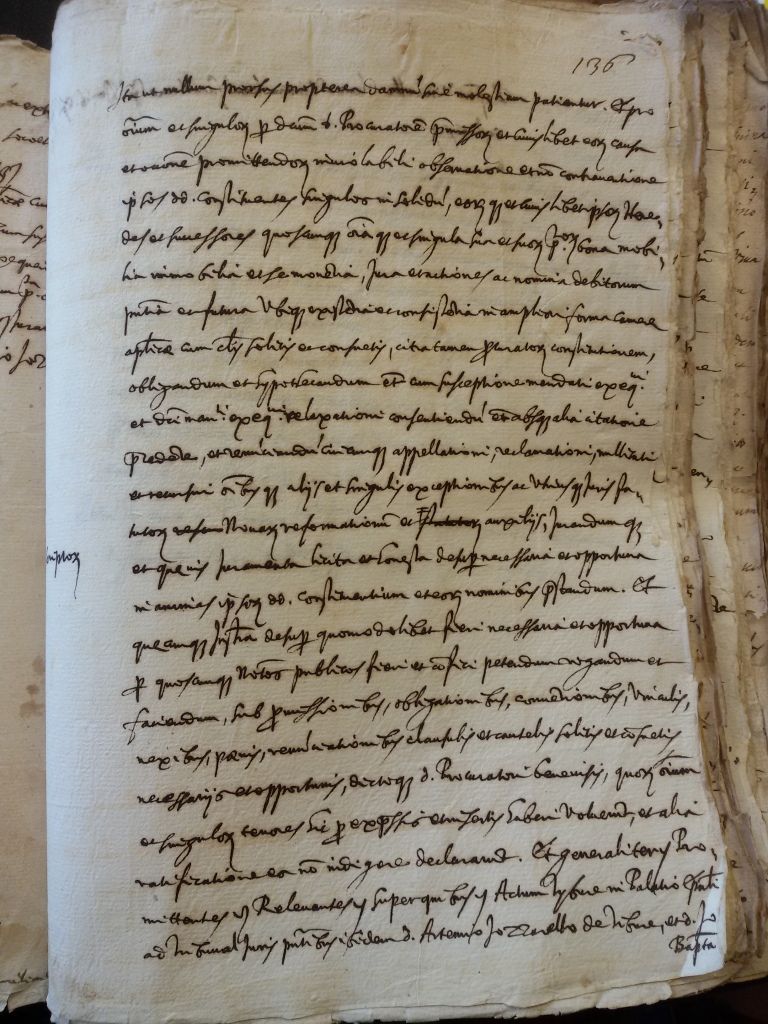 136
Ita ut nullum prorsus propterea damnu sive molestiam patiantur. Et pro
oium et singulor p dcum d. Procuratore pmissor et cuiuslibet eor causa
et occone promittendor inviolabili observatione et no contraventione
ipsos dd. constituentes singulos in solidu, eorq et cuiuslibet ipsor Here,
des et successores quoscunq oia q et singula sua et suor pter bona mobi,
lia immobilia et semoventia, Jura et actiones ac nomina debitorum
pntia et futura ubiq existentia et consistentia in ampliori forma Camere
aplice cum clis solitis et consuetis, citra tamen procurator constitutionem,
obligandum et hypothecandum et cum susceptione mandati exeq
et dci man exeq relaxationi consentiendu et absq alia citatione
precedente, et renunciandu cuicunq appellationi, reclamationi, nullitati
et recursui oibus q aliis et singulis exceptionibus ac utriusq Juris sta,
tutor Novar reformationu et auxiliis, Jurandum q
et quevis Juramenta licita et honesta desup necessaria et opportuna
in animas ipsor dd. constituentium et eor nominibus pstandum. Et
quecunq Instra desup quomodolibet fieri necessaria et opportuna
p quoscunq Notos publicos fieri et cofici petendum rogandum et
faciendum, sub pmissionibus, obligationibus, conventionibus, vinculis,
nexibus, penis, renunciationibus clausulis et cautelis solitis et consuetis
necessariis et opportunis, dictoq d. Procuratori benevisis, quor oium
et singulor tenores hic p expssis et insertis haberi voluerunt, et alia
ratificatione eos no indigere declararunt. Et generaliter Pro,
mittentes Relevantes super quibus Actum Tybure in Palatio
ad Tribunal Juris pntibus ibidem d. Artemio de Tibure, et d. Jo
Bapta